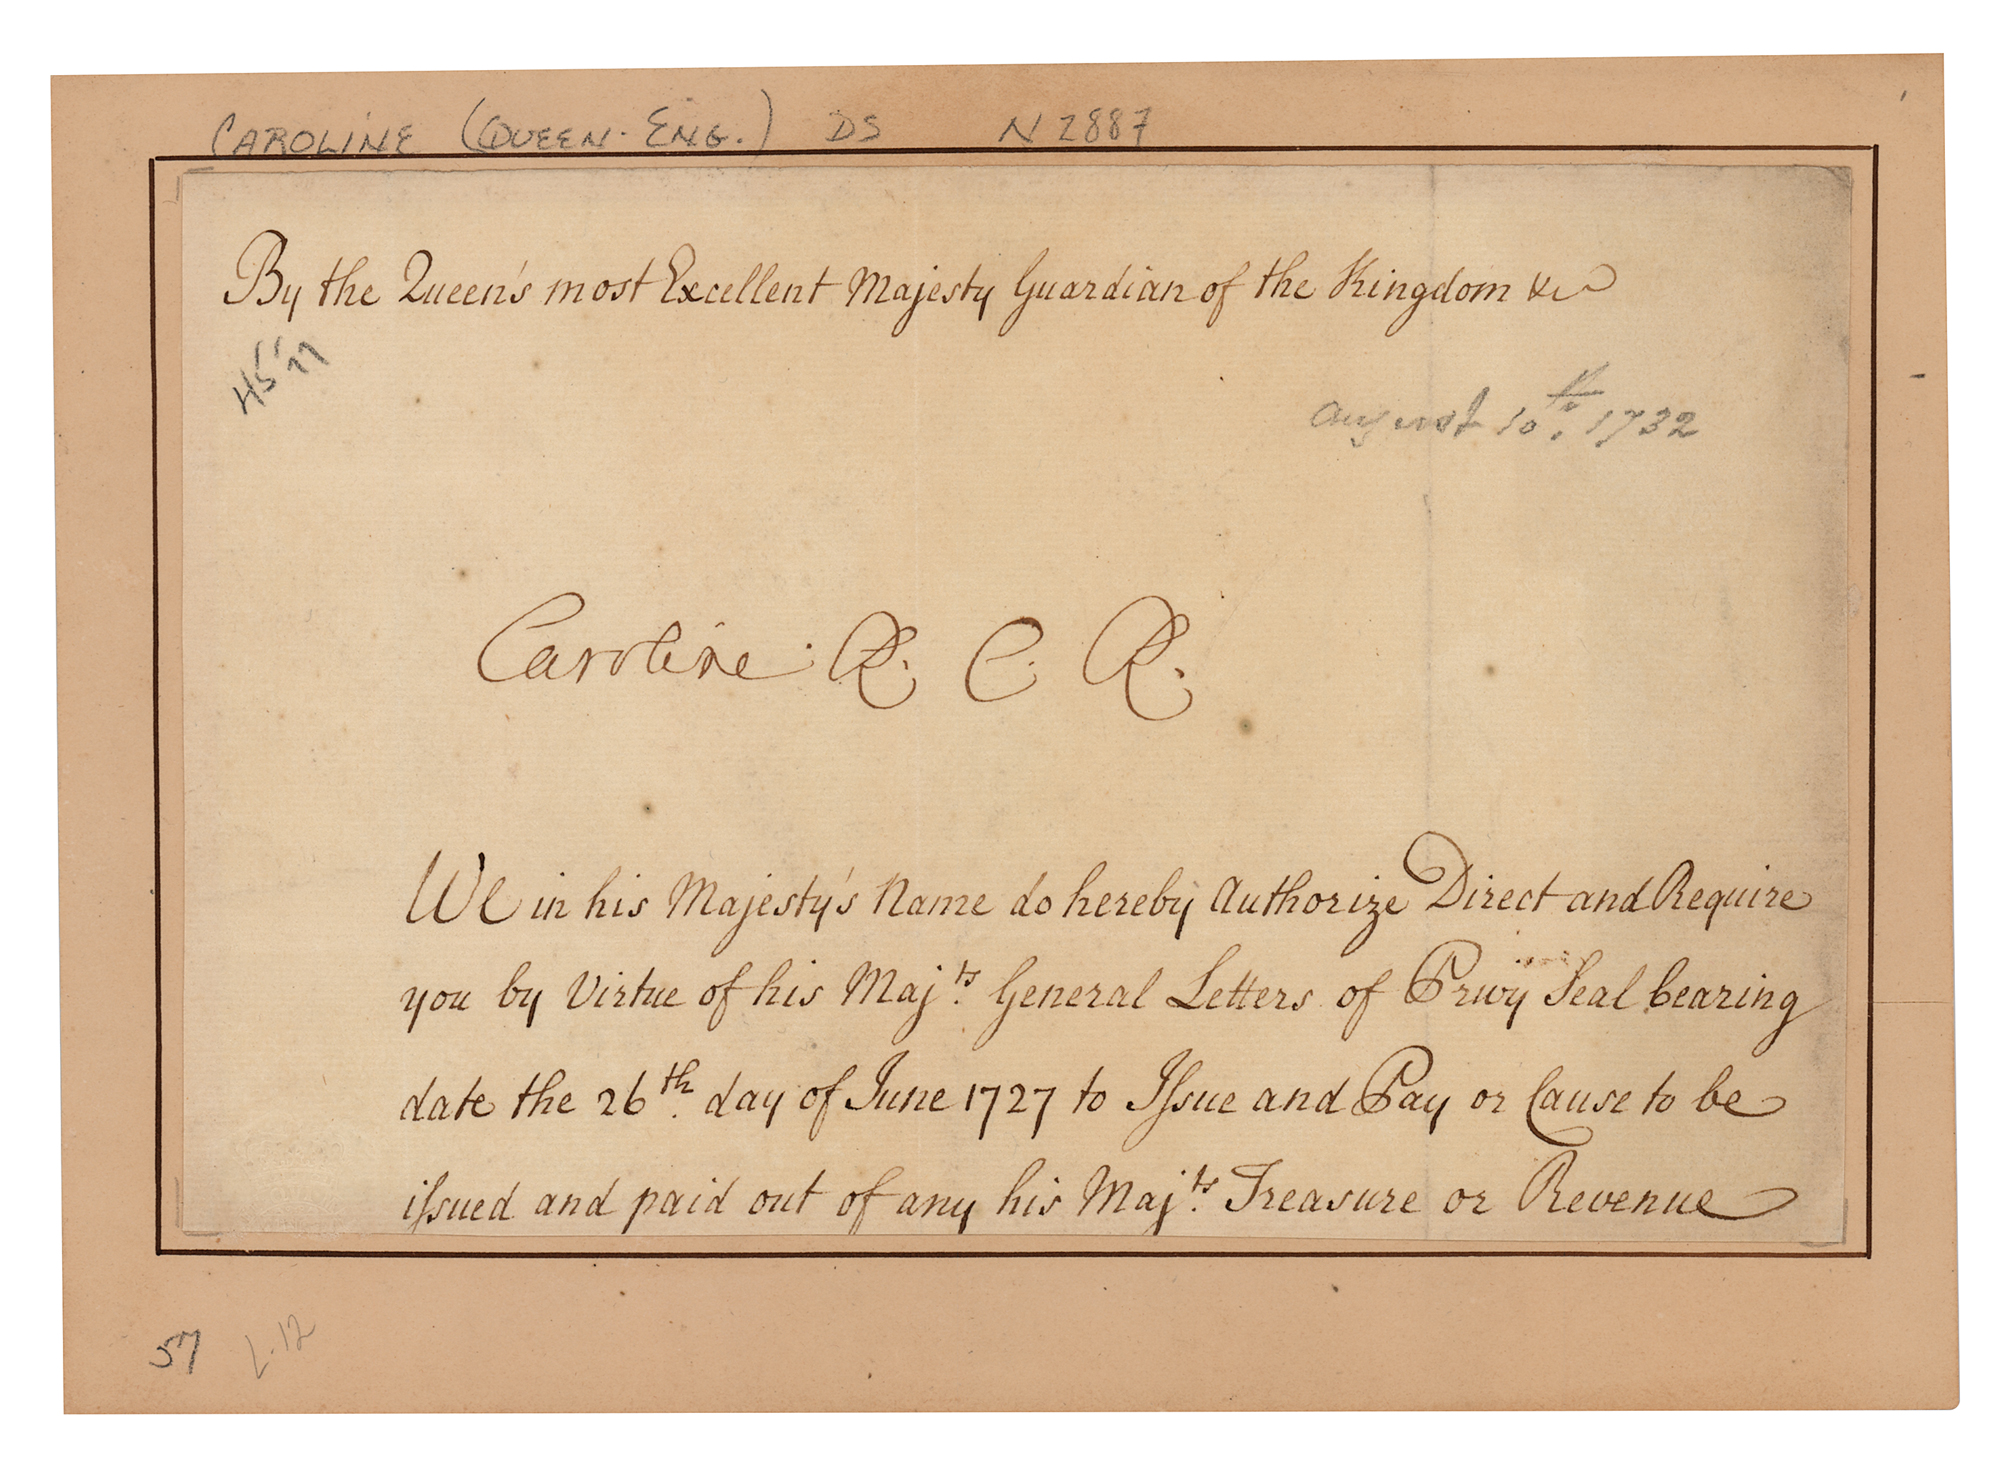 CAROLINE (QUEEN. ENG.) DS N2887
By the Queen's most Excellent Majesty Guardian of the Kingdom &c
August 10th. 1732
Caroline. R. C. R.
We in his Majesty's Name do hereby Authorize Direct and Require
you by Virtue of his Maj.ts General Letters of Privy Seal bearing
date the 26th. day of June 1727 to Issue and Pay or Cause to be
issued and paid out of any his Maj.ts Treasure or Revenue
57 L.12